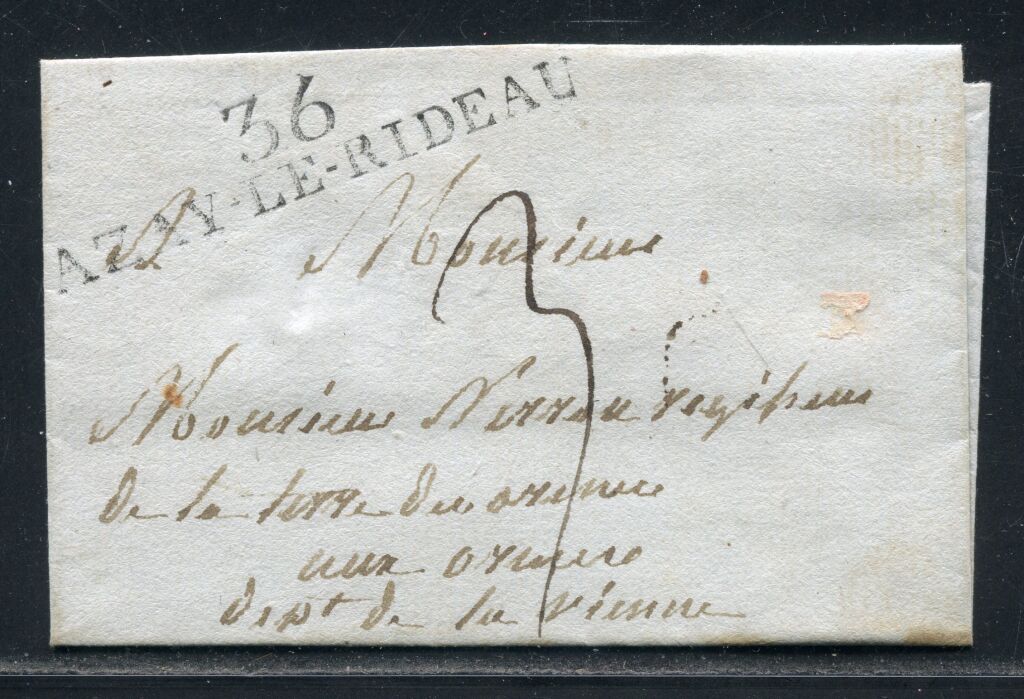 36
AZAY-LE-RIDEAU
A Monsieur
3
Monsieur Nerreau regisseur
de la terre des ormes
aux ormes
dept de la vienne